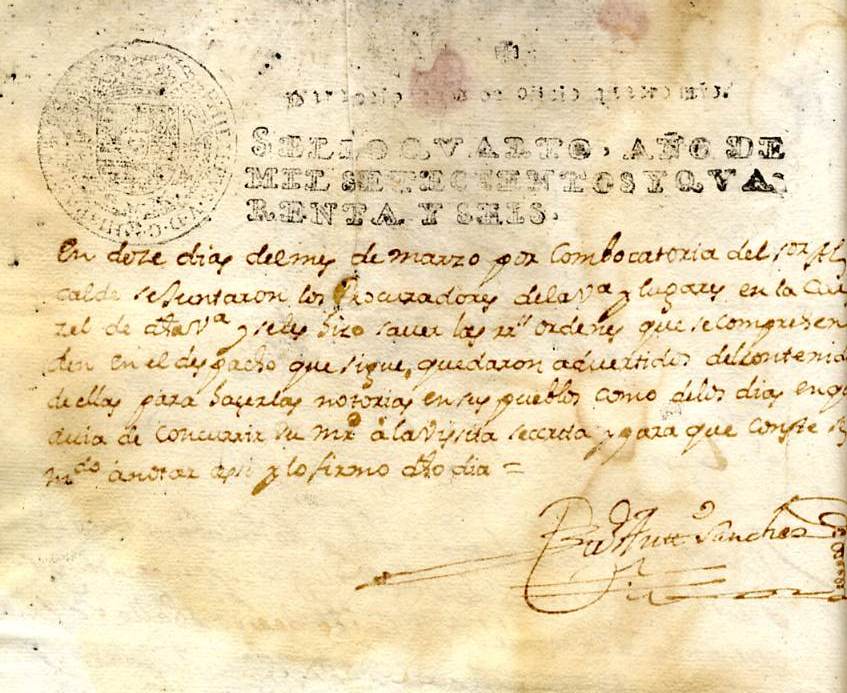 SELLO QVARTO, AÑO DE
MIL SETECIENTOS Y QVA
RENTA Y SEIS.
En doze dias del mes de marzo por Combocatoria del sor Al
calde se Juntaron los Procuradores dela Va y lugares en la Car
zel de dha Va y seles hizo saver las rrs ordenes que se compreen
den en el despacho que sigue, quedaron advertidos del contenid
de ellas para hazerlas notorias en sus pueblos como delos dias en q
de concurrir su mrd â la Vissita secreta y para que conste se
mdo ânotar assi y lo firmo dho dia =
Sanchez